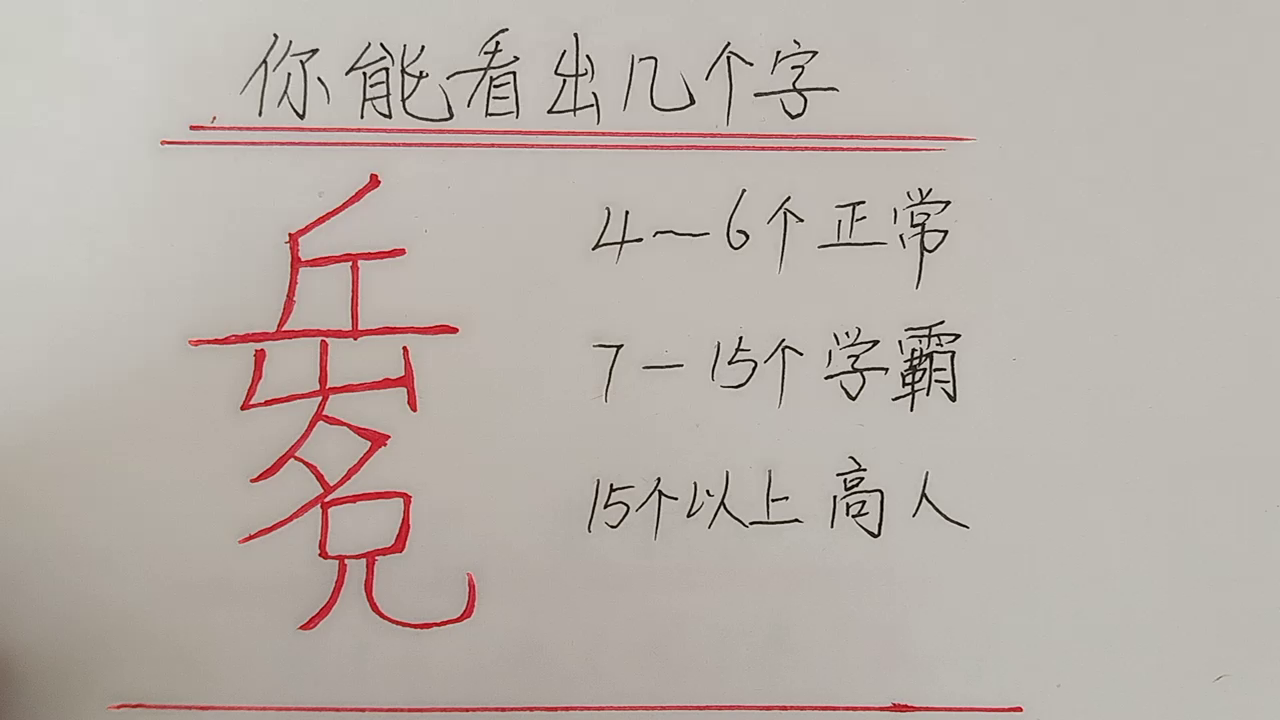 你能看出几个字
4～6个正常
7—15个学霸
15个以上高人